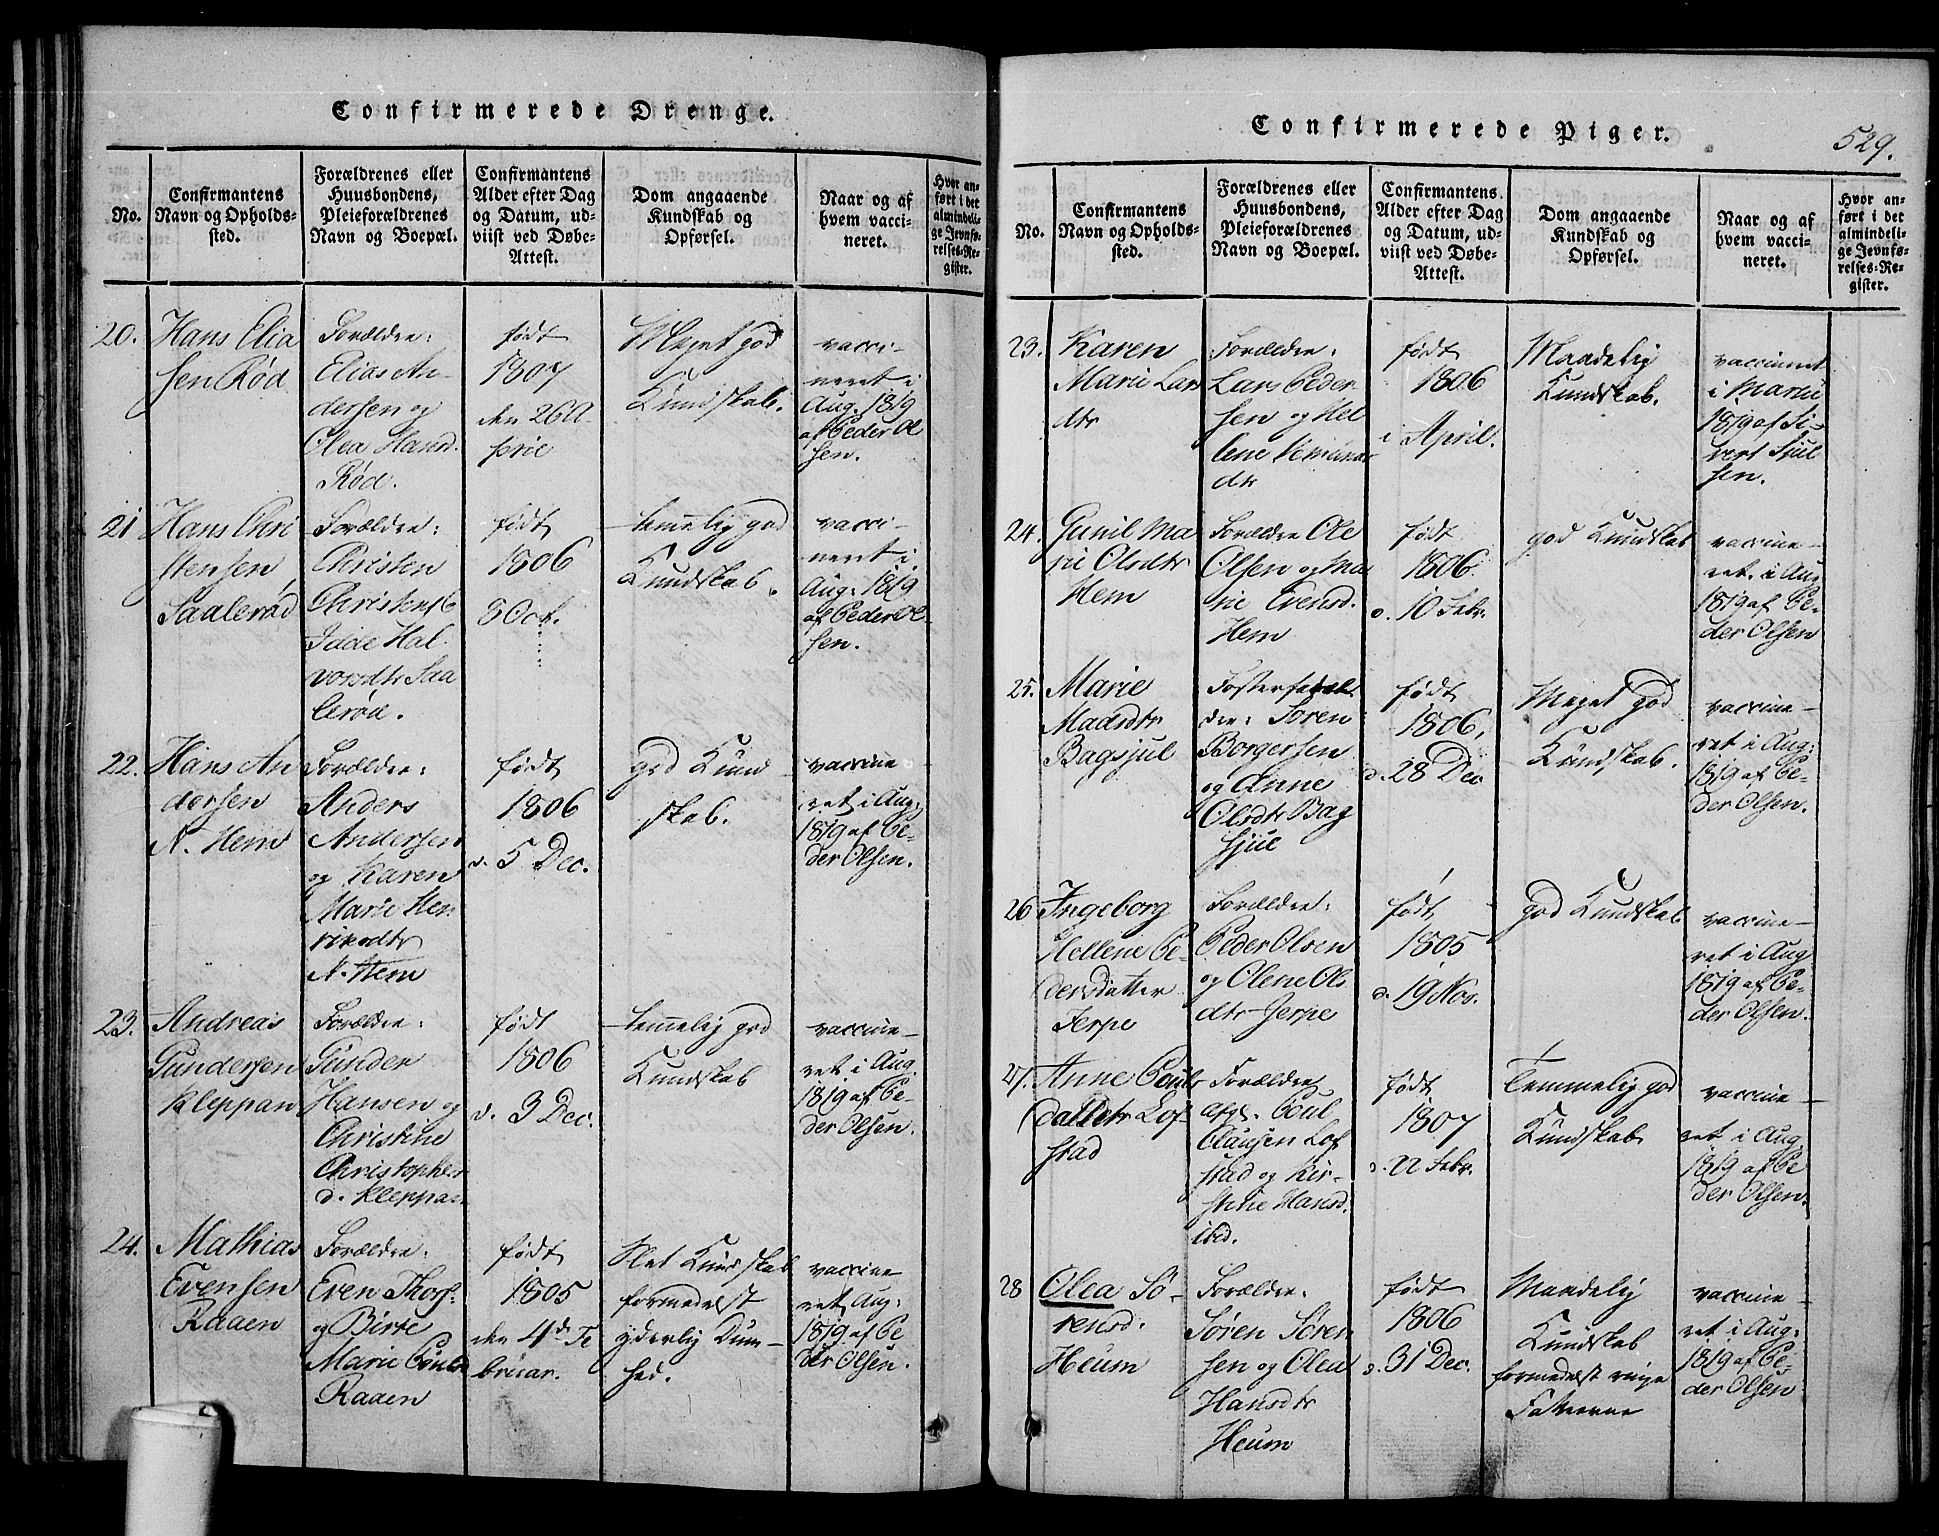 Confirmerede Drenge.
No.
Confirmantens
Navn og Opholds-
sted.
Forældrenes eller
Huusbondens,
Pleieforældrenes
Navn og Boepæl.
Confirmantens
Alder efter Dag
og Datum, ud-
viist ved Døbe-
Attest.
Dom angaaende
Kundskab og
Opførsel.
Naar og af
hvem vacci-
neret.
Hvor an-
ført i det
almindeli-
ge Jevnfø-
relses-Re-
gister.
20.
Hans Elia
sen Rød
Forældre:
Elias An-
dersen og
Olea Hansd.
Rød.
født
1807
den 26 A-
pril
Meget god
Kundskab.
vacci-
neret i
Aug. 1819
af Peder Ol
sen.
21
Hans Chri
stensen
Saalerød
Forældre:
Christen
Christens
Hal
vorsdtr Saa
lerød.
født
1806
Oct.
temelig god
Kundskab.
vacci-
neret i
Aug: 1819
af Peder Ol-
sen.
22.
Hans An
dersen
N. Hem
Forældre:
Anders
Andersen
og Karen
Marie Hen
riksdtr
N. Hem
født
1806
d. 5 Dec.
god Kund
skab.
vaccine
ret i Aug:
1819 af Pe-
der Olsen.
23.
Andreas
Gundersen
Kleppan
Forældre:
Gunder
Hansen og
Christine
Christopher
d. Kleppan
født
1806
d. 3 Dec.
temelig god
Kundskab
vaccine-
ret i Aug.
1819 af Pe-
der Olsen.
24.
Mathias
Evensen
Raaen
Forældre:
Even Thors-
og Birte
Marie Pouls
Raaen
født
1805
den 4de Fe
bruar.
Slet Kundskab
formedelst
yderlig Dum-
hed.
vaccine
ret Aug:
1819 af Pe
der Olsen.
Confirmerede Piger.
529.
No.
Confirmantens
Navn og Opholds-
sted.
Forældrenes eller
Huusbondens,
Pleieforældrenes
Navn og Boepæl.
Confirmantens.
Alder efter Dag
og Datum, ud-
viist ved Døbe-
Attest.
Dom angaaende
Kundskab og
Opførsel.
Naar og af
hvem vacci-
neret.
Hvor an-
ført i det
almindeli-
ge Jevnfø-
relses-Re-
gister.
23.
Karen
Marie Lars
dtr
Forældre:
Lars Peder
sen og Hel
lene
dtr
født
1806
i April.
Maadelig
Kundskab.
vaccineret
i
1819 af Si-
vert Sjul
sen.
24.
Gunil Ma
rie Olsdtr
Hem
Forældre Ole
Olsen og Ma
rie Evensd.
Hem
født
1806
d. 10 Febr.
god Kundskab
vaccine-
ret. i Aug
1819 af Pe-
der Olsen
25.
Marie
Madsdtr
Bagsjul
Fosterforæl
dre: Søren
Borgersen
og Anne
Olsdtr Bag
sjul
født
1806,
d. 28 Dec
Meget god
Kundskab.
vaccine-
ret i Aug:
1819 af Pe-
der Olsen.
26
Ingeborg
Hellene Pe-
dersdatter
Jerpe
Forældre:
Peder Olsen
og Olene Ols
dtr Jerpe
født
1805
d. 19 Nov.
god Kundskab
vaccine-
ret i Aug
1819 af Pe-
der Olsen.
27.
Anne Pouls
dattetr Lof-
stad
Forældre
afg. Poul
Clausen Lof
stad og Kir-
stine Hansd.
ibid.
født
1807
d. 22 Febr.
Temmelig god
Kundskab
vaccine-
ret i Aug.
1819 af Pe
der Olsen.
28
Olea Sø-
rensd.
Heum
Forældre:
Søren Søren
sen og Olea
Hansdtr
Heum
født
1806
d. 31 Dec.
Maadelig
Kundskab
formedelst ringe
vaccine-
ret i Aug:
1819 af Pe-
der Olsen